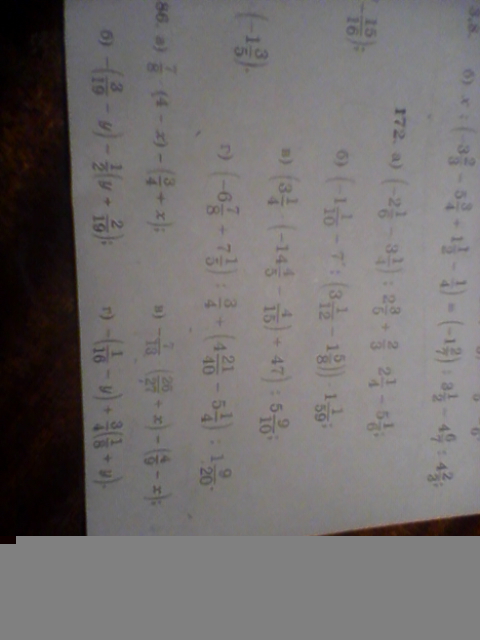 3.8. б) x : (−3 2/3 − 5 3/4 + 1 1/2 − 1/4) = (−1 2/7) : 3 1/2 − 4 6/7 : 4 2/3;
− 15/16);
(−1 3/5).
172. а) (−2 1/6 − 3 1/4) : 2 3/5 + 2/3 · 2 1/4 − 5 1/6;
б) (−1 1/10 − 7 : (3 1/12 − 1 5/8)) · 1 1/59;
в) (3 1/4 − (−14 4/5 − 4/15) + 47) : 5 9/10;
г) (−6 7/8 + 7 1/5) : 3/4 + (4 21/40 − 5 1/4) : 1 9/20.
86. а) 7/8 · (4 − x) − (3/4 + x);
б) −(3/19 − y) − 1/2(y + 2/19);
в) − 7/13 (26/27 + x) − (4/9 − x);
г) −(1/16 − y) + 3/4(1/8 + y).